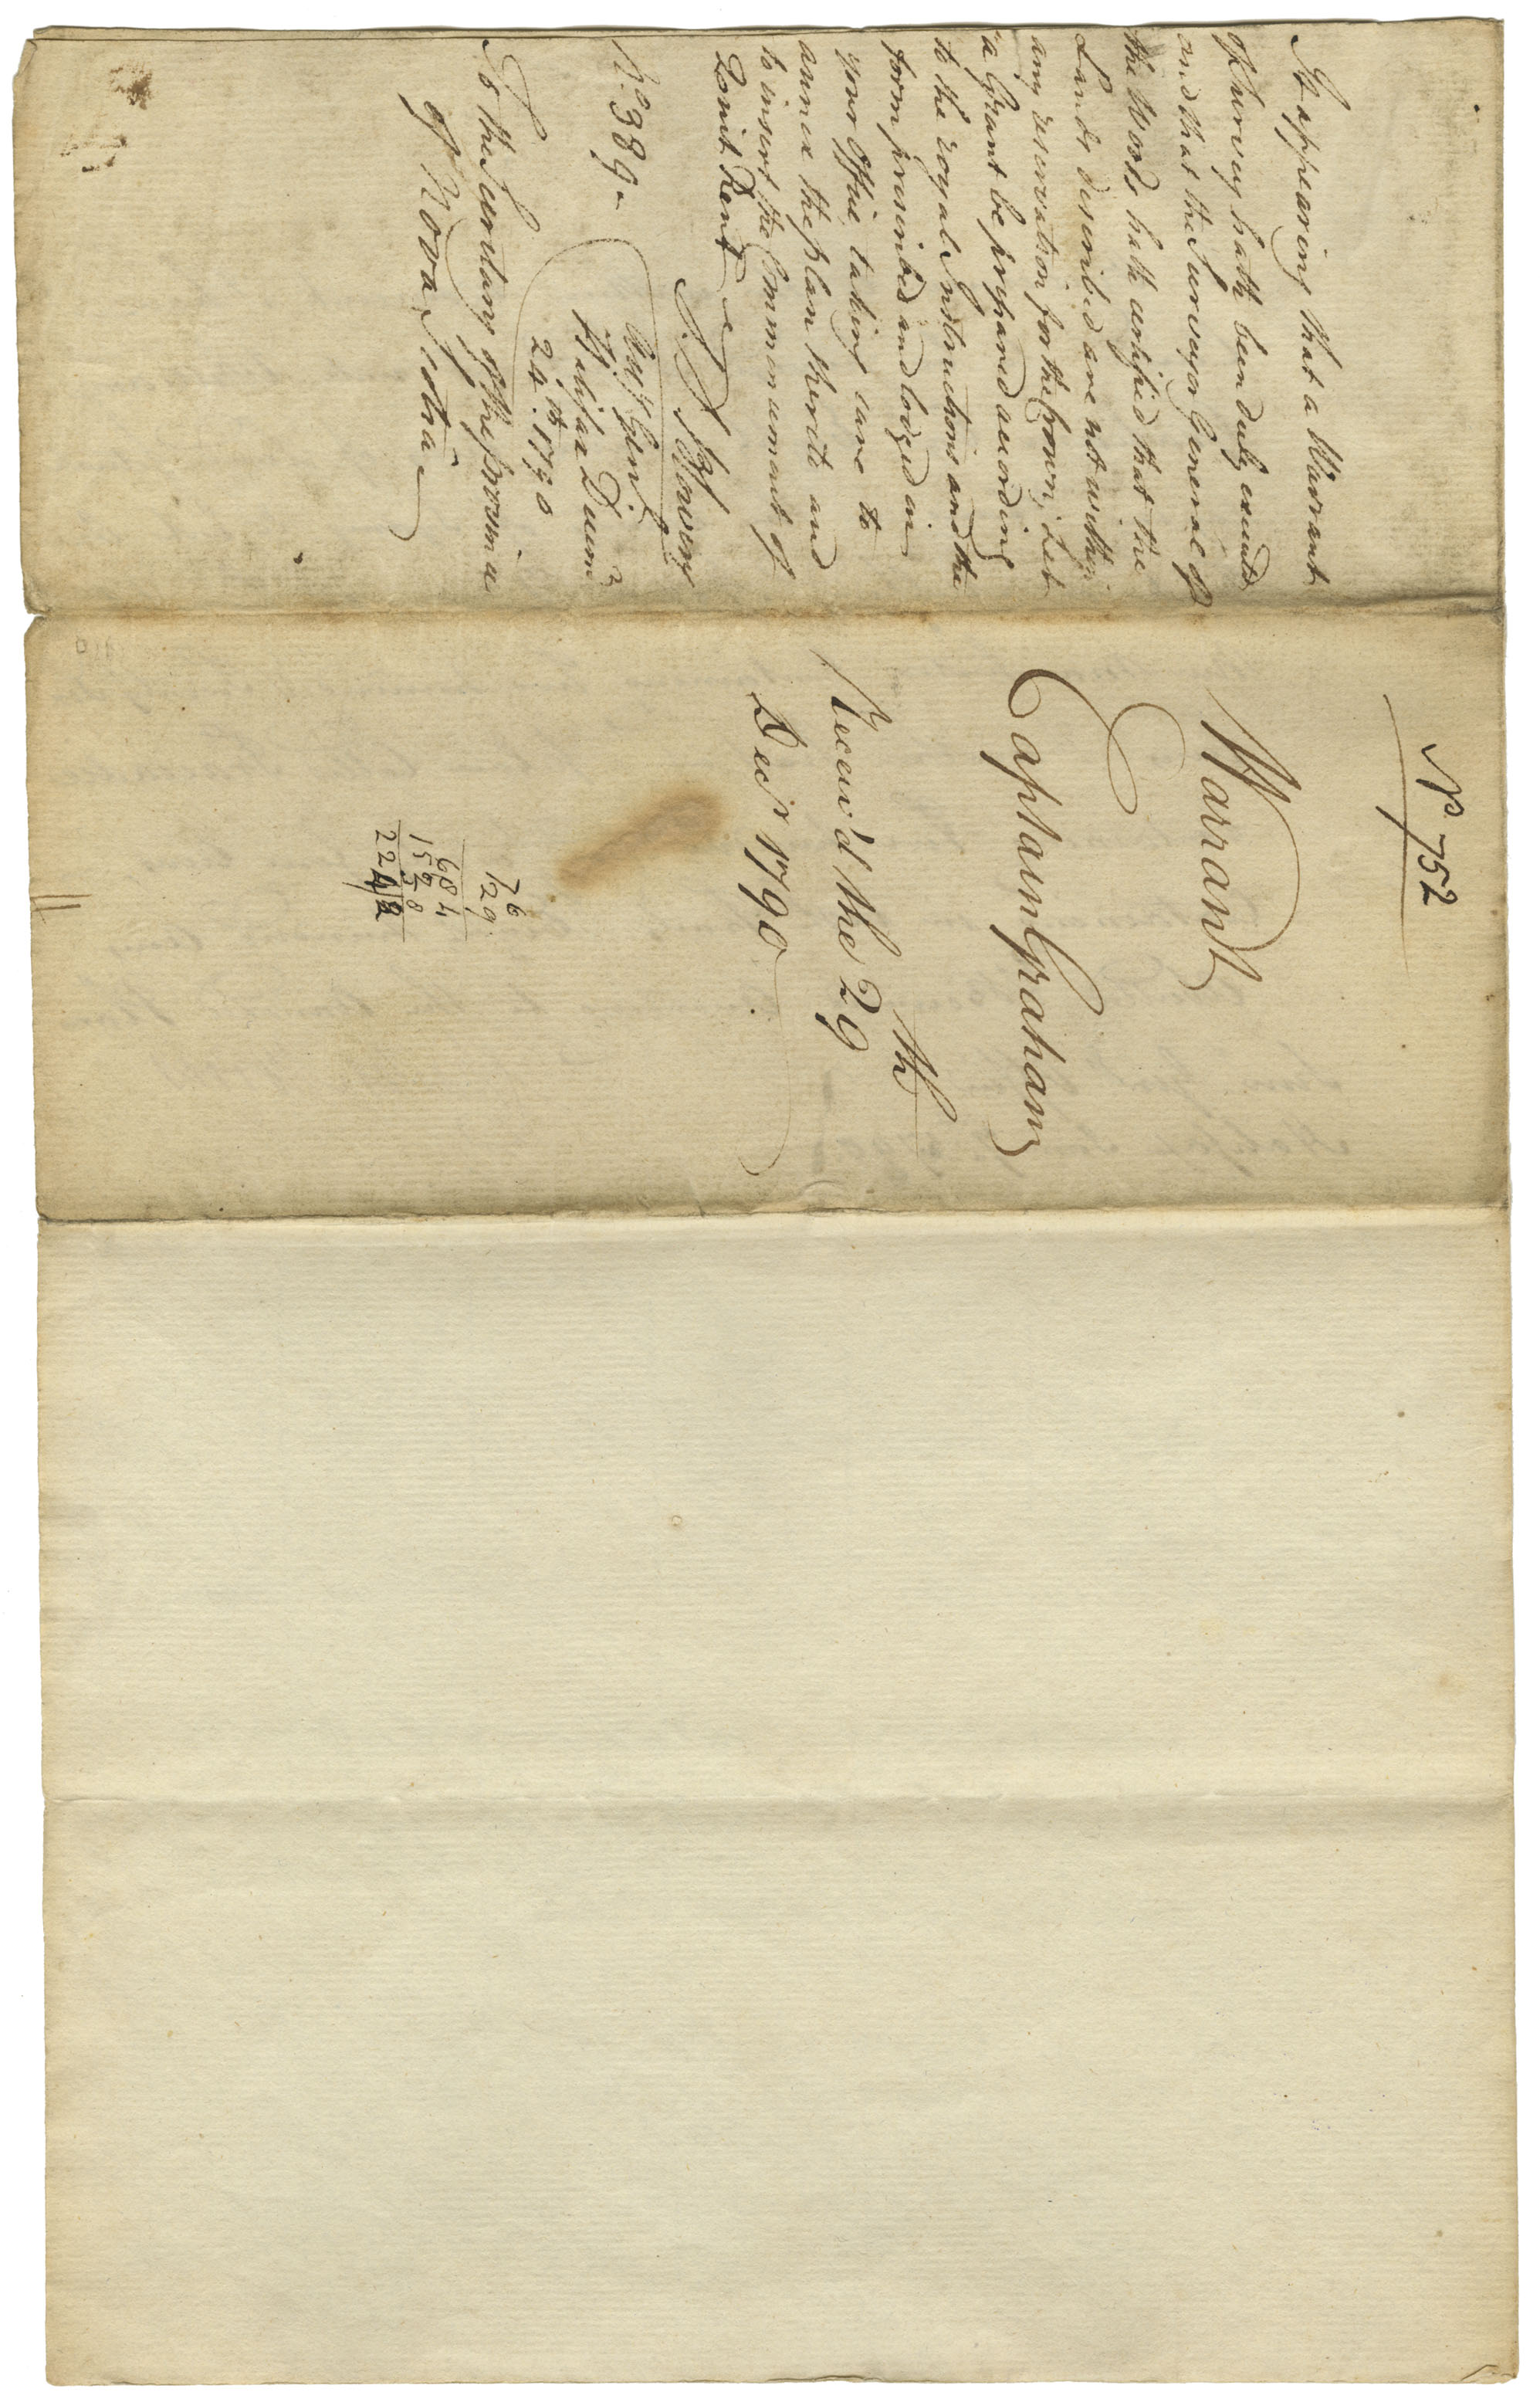 It appearing that a Warrant
of Survey hath been duly executed
and that the Surveyor General of
the Woods hath certified that the
Lands described are not within
any reservation for the Crown; Let
a Grant be prepared according
to the royal Instructions and the
form prescribed and lodged in
your Office taking care to
annex the plan thereto and
to insert the Commencement of
Quit Rent
S. S. Blowers
Atty Genl.
No. 389.
Halifax Decemr.
24th. 1790
To the Secretary of the province
of Nova Scotia
No 752
Warrant
Captain Graham
Receiv'd the 29th
Decr 1790
76
129
684